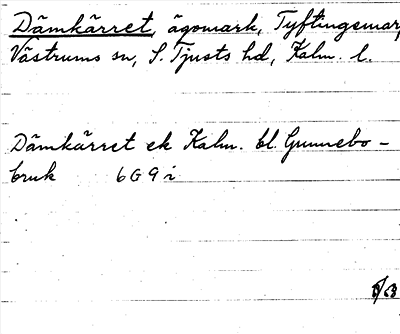 Dämkärret, ägomark, Tyftingemar
Västrums sn, S. Tjusts hd, Kalm. l.
Dämkärret ek Kalm. bl. Gunnebo-
bruk 6G9i